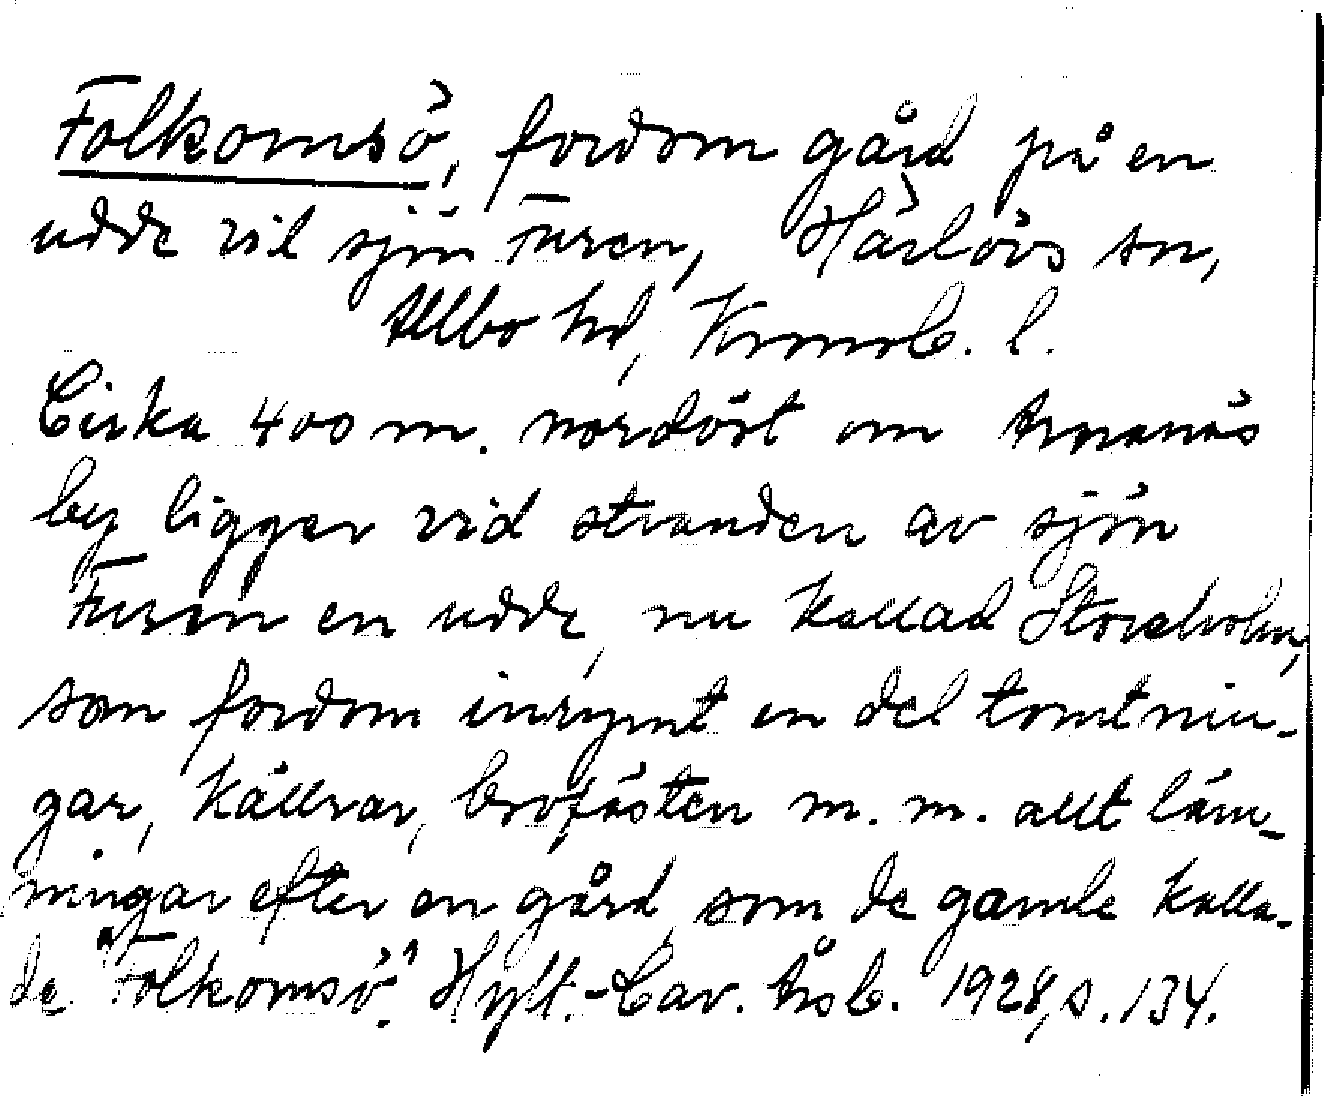 Folkomsö, fordom gård på en
udde vid sjön Furen, Härlövs sn,
Allbo hd, Kronob. l.
Cirka 400 m. nordöst om Arnanäs
by ligger vid stranden av sjön
Furen en udde, nu kallad Storeholm,
som fordom inrymt en del tomtnin-
gar, källrar, brofästen m. m. allt läm-
ningar efter en gård, som de gamle kalla-
de "Folkomsö". Hylt.-Cav. Årsb. 1928, s. 134.